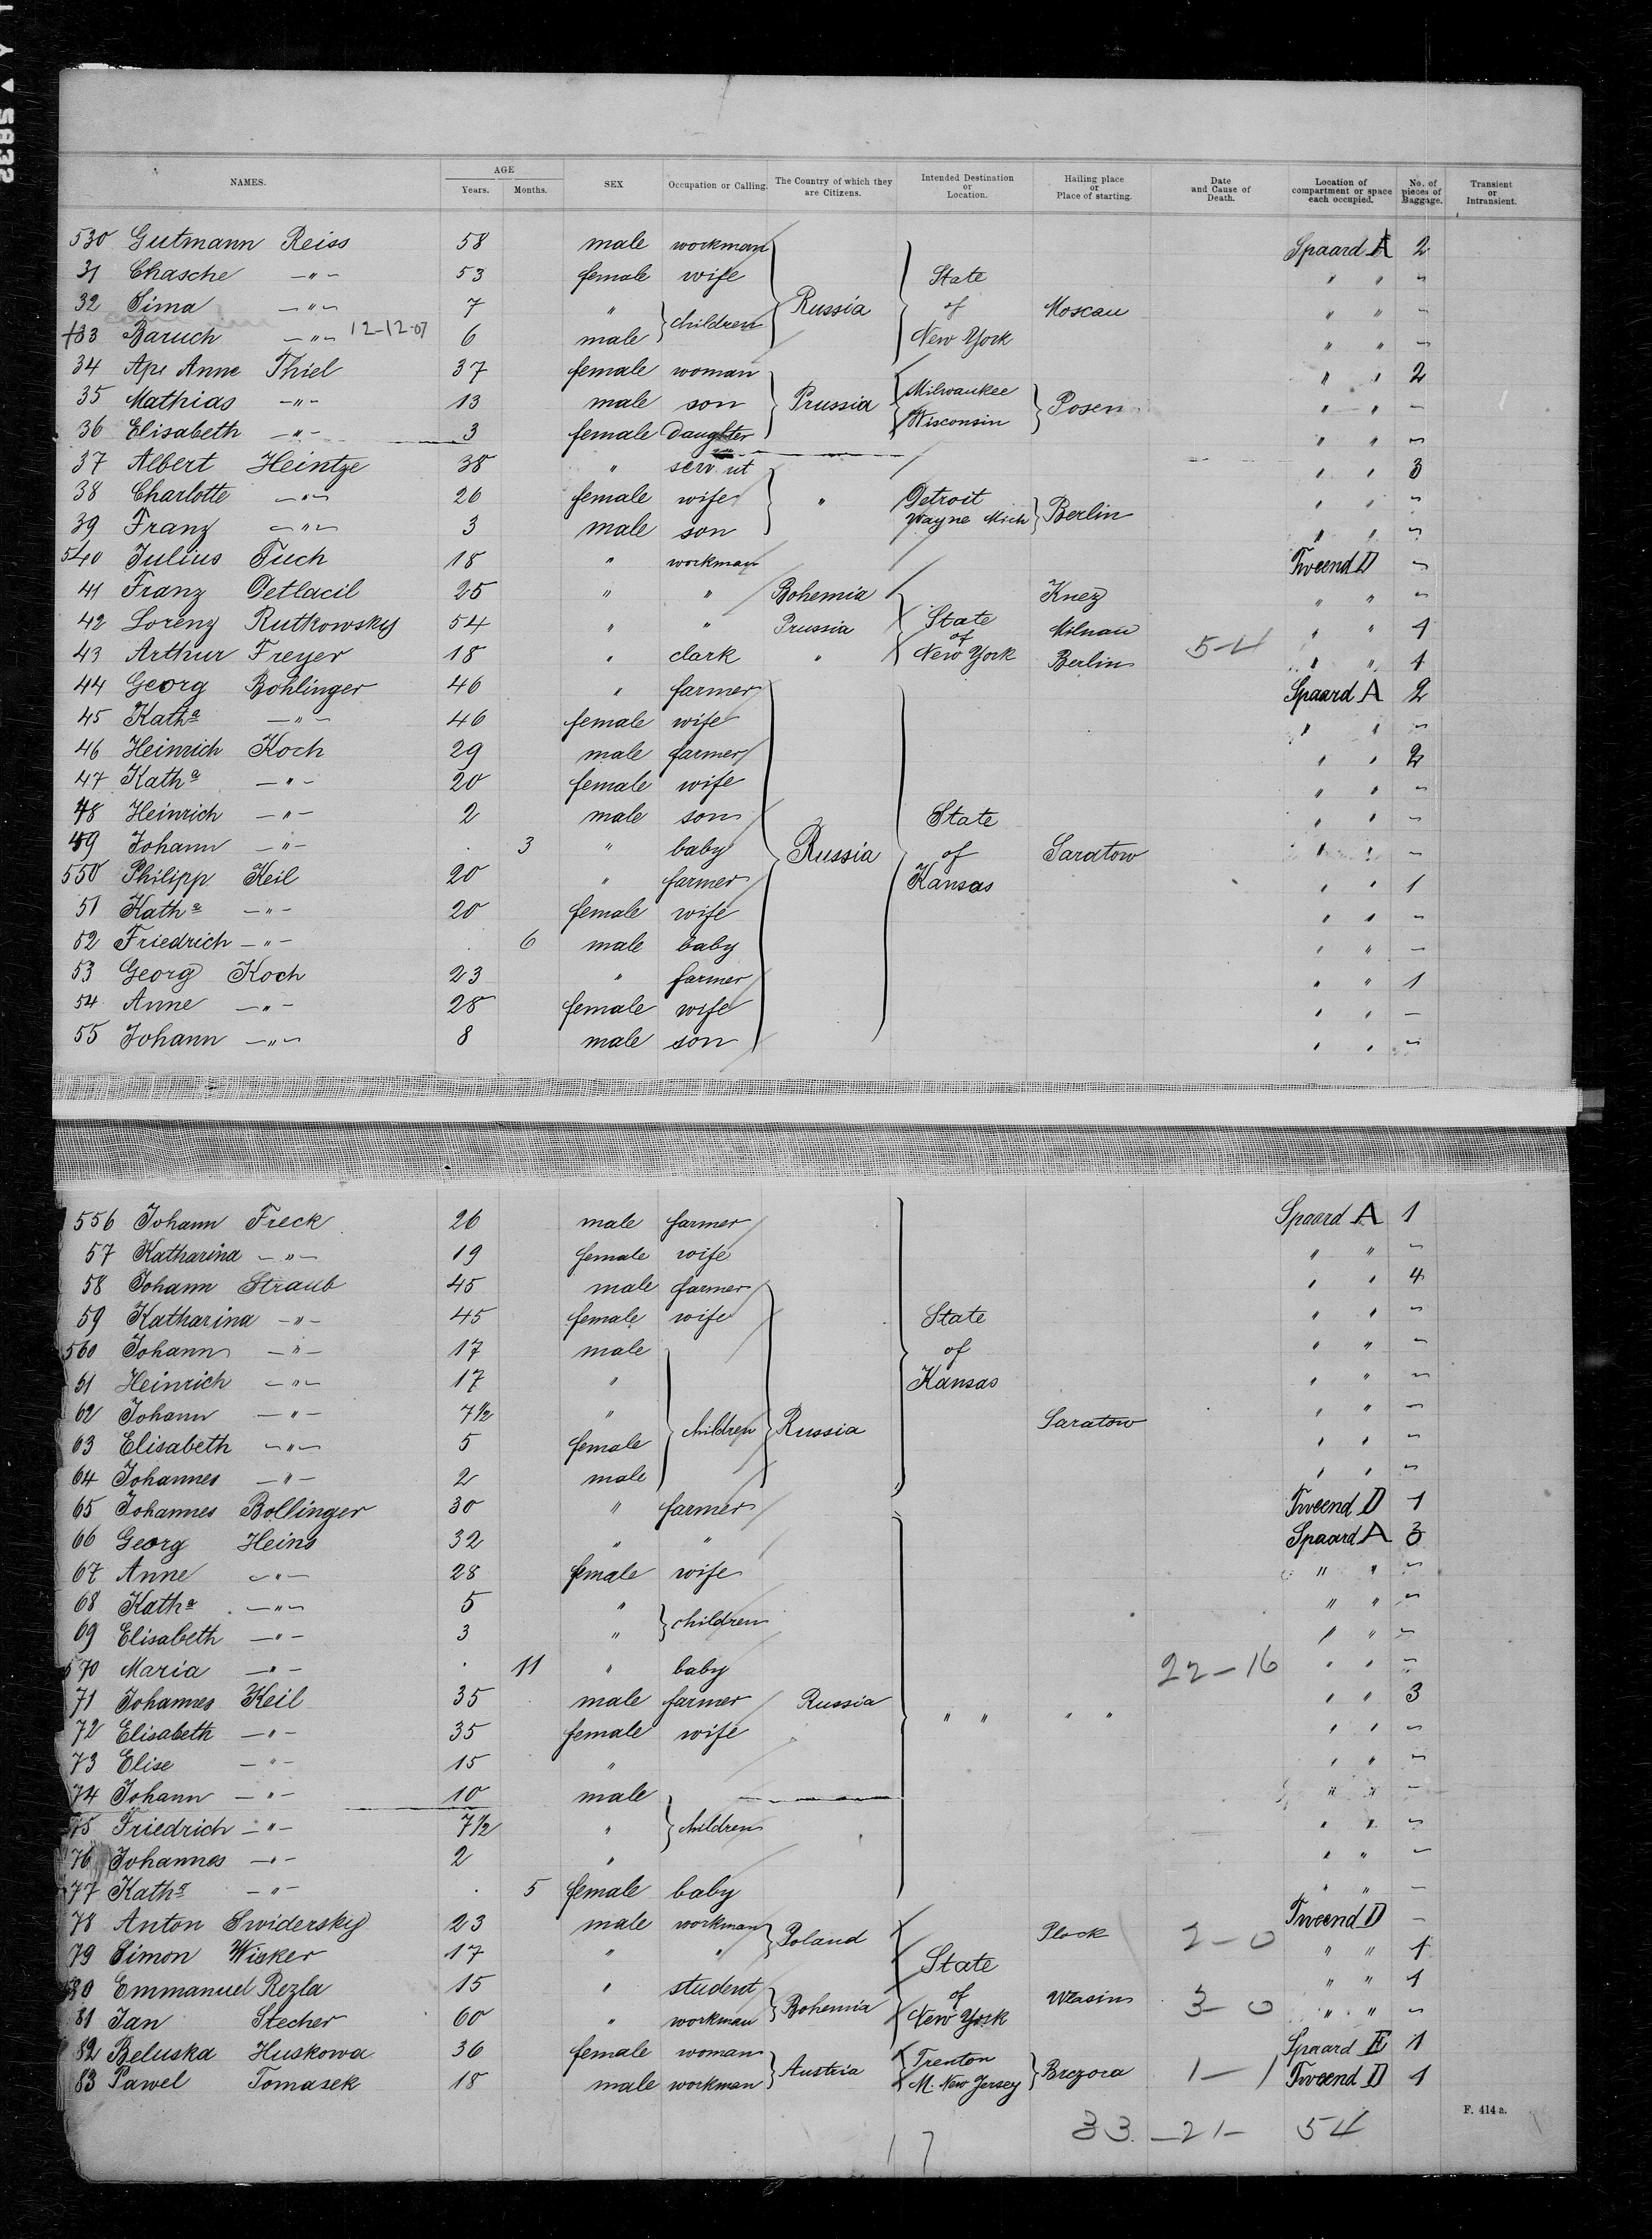 NAMES. AGE Years. Months. SEX Occupation or Calling. The Country of which they are Citizens. Intended Destination or Location. Hailing place or Place of starting. Date and Cause of Death. Location of compartment or space each occupied. No. of pieces of Baggage. Transient or Intransient.
530 Gutmann Reiss 58 male workman Spaard A 2
31 Chasche —"— 53 female wife State " " —
32 Sima —"— 7 " children Russia of Moscau " " —
+33 Baruch —"— 12-12-07 6 male New York " " —
34 Anne Thiel 37 female woman " " 2
35 Mathias —"— 13 male son Prussia Milwaukee Wisconsin Posen " " —
36 Elisabeth —"— 3 female Daughter " " —
37 Albert Heintze 38 " " " 3
38 Charlotte —"— 26 female wife " Detroit Wayne Mich Berlin " " —
39 Franz —"— 3 male son " " —
540 Julius Tuch 18 " workman Tweend D —
41 Franz Detlacil 25 " " Bohemia Knez " " —
42 Lorenz Rutkowsky 54 " " Prussia State of Milnau " " 1
43 Arthur Freyer 18 " clark " New York Berlin 5-4 " " 1
44 Georg Bohlinger 46 " farmer Spaard A 2
45 Katha —"— 46 female wife " " —
46 Heinrich Koch 29 male farmer " " 2
47 Katha —"— 20 female wife " " —
48 Heinrich —"— 2 male son State " " —
49 Johann —"— . 3 " baby Russia of Saratow " " —
550 Philipp Keil 20 " farmer Kansas " " 1
51 Katha —"— 20 female wife " " —
52 Friedrich —"— . 6 male baby " " —
53 Georg Koch 23 " farmer " " 1
54 Anne —"— 28 female wife " " —
55 Johann —"— 8 male son " " —
556 Johann Freck 26 male farmer Spaard A 1
57 Katharina —"— 19 female wife " " —
58 Johann Straub 45 male farmer " " 4
59 Katharina —"— 45 female wife State " " —
560 Johann —"— 17 male of " " —
61 Heinrich —"— 17 " Kansas " " —
62 Johann —"— 7½ " children Russia Saratow " " —
63 Elisabeth —"— 5 female " " —
64 Johannes —"— 2 male " " —
65 Johannes Bollinger 30 " farmer Tweend D 1
66 Georg Heins 32 " " Spaard A 3
67 Anne —"— 28 female wife " " —
68 Katha —"— 5 " children " " —
69 Elisabeth —"— 3 " " " —
570 Maria —"— . 11 " baby 22-16 " " —
71 Johannes Keil 35 male farmer Russia " " " " " " 3
72 Elisabeth —"— 35 female wife " " —
73 Elise —"— 15 " " " —
74 Johann —"— 10 male " " —
575 Friedrich —"— 7½ " children " " —
76 Johannes —"— 2 " " " —
77 Katha —"— . 5 female baby " " —
78 Anton Swidersky 23 male workman Poland Plock 2-0 Tweend D —
79 Simon Wisker 17 " " State " " 1
580 Emmanuel Rezla 15 " student Bohemia of Wlasim 3-0 " " 1
81 Jan Stecher 60 " workman New York " " —
82 Beluska Huskowa 36 female woman Austria Trenton Brezora 1-1 Spaard E 1
83 Pawel Tomasek 18 male workman M. New Jersey Tweend D 1
F. 414 a.
17 33-21- 54